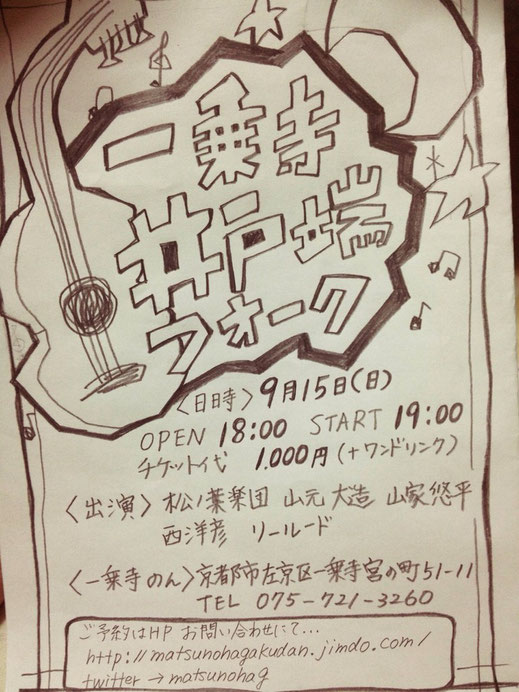 一乗寺
井戸端
フォーク
〈日時〉9月15日(日)
OPEN 18:00 START 19:00
チケット代 1.000円(+ワンドリンク)
〈出演〉松ノ葉楽団 山元大造 山家悠平
西洋彦 リールード
〈一乗寺のん〉京都市左京区一乗寺宮の町51-11
TEL 075-721-3260
ご予約はHP お問い合わせにて...
http://matsunohagakudan.jimdo.com/
twitter→matsunohag